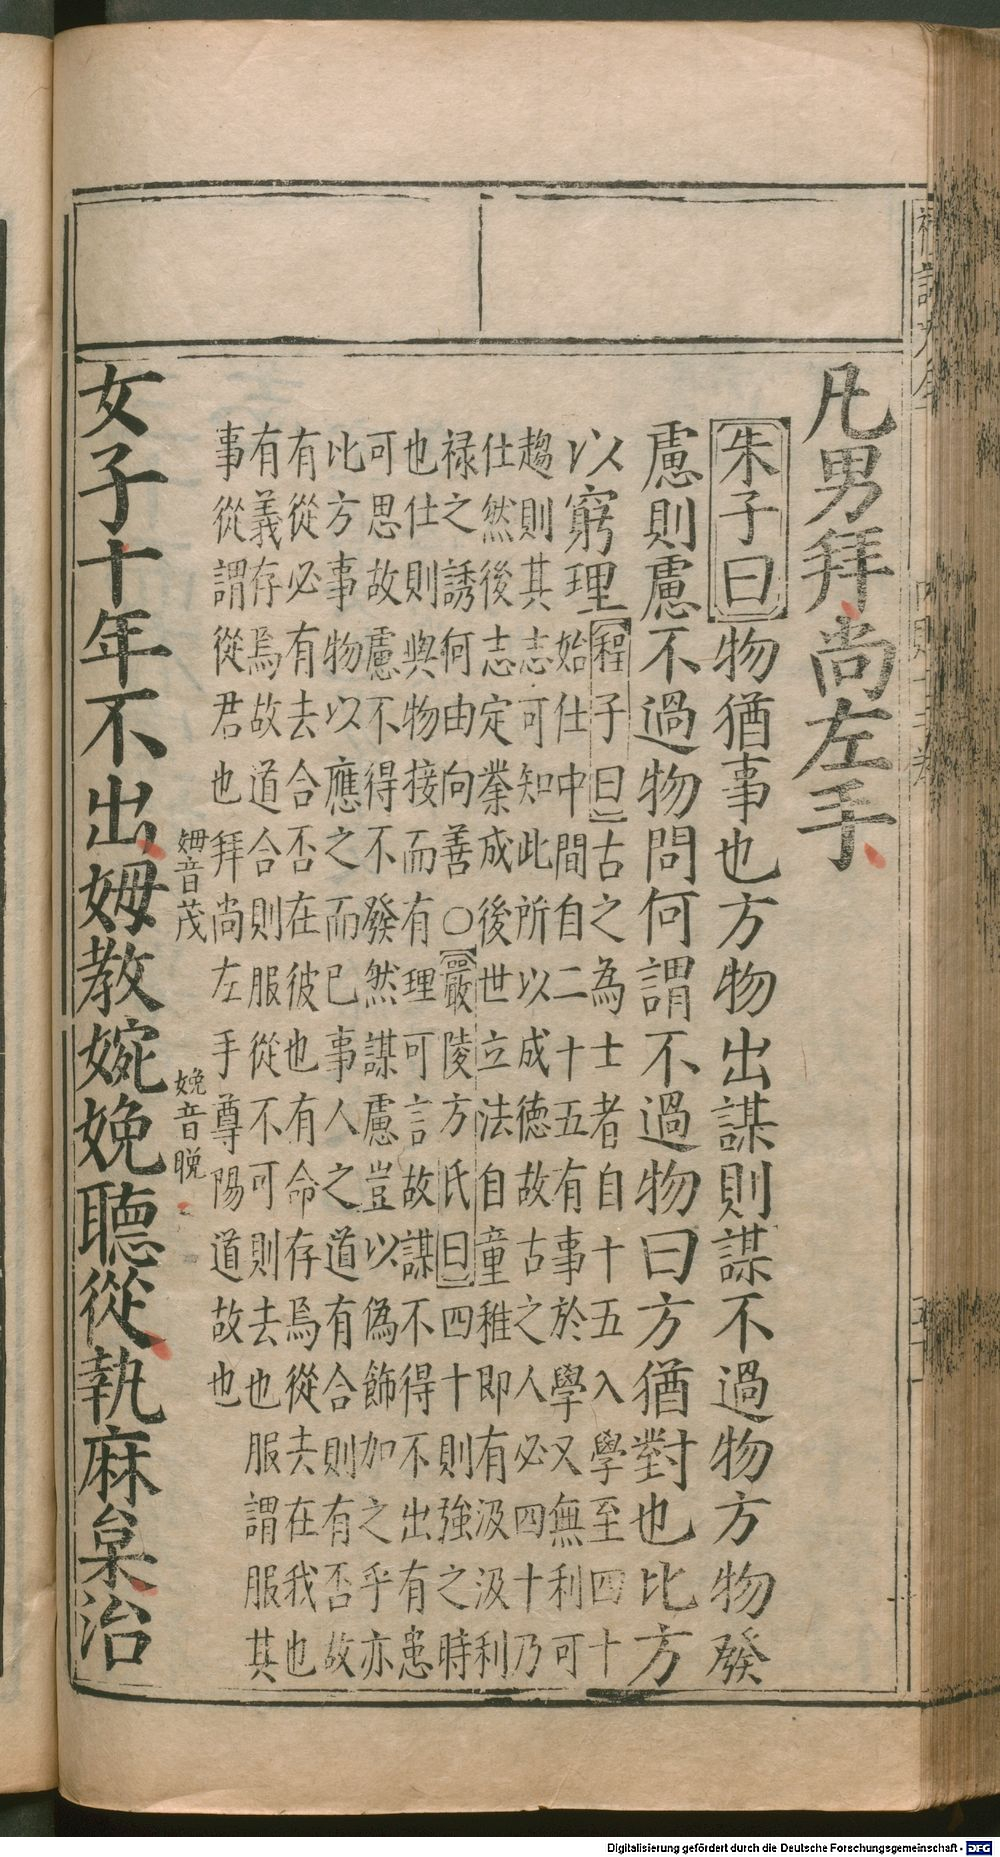 凡男拜尚左手
朱子曰物猶事也方物出謀則謀不過物方物發
慮則慮不過物問何謂不過物曰方猶對也比方
以窮理
程子曰古之為士者自十五入學至四十
始仕中間自二十五有事於學又無利可
趨則其志可知此所以成德故古之人必四十乃
仕然後志定業成後世立法自童稚即有汲汲利
祿之誘何由向善○嚴陵方氏曰四十則強之時
也仕則與物接而有理可言故謀不得不出有患
可思故慮不得不發然謀慮豈以偽飾加之乎亦
比方事物以應之而已事人之道有合則有否故
有從必有去合否在彼也有命存焉從去在我也
有義存焉故道合則服從不可則去也服謂服其
事從謂從君也拜尚左手尊陽道故也
姆音茂
娩音晚
女子十年不出姆教婉娩聽從執麻枲治
Digitalisierung gefördert durch die Deutsche Forschungsgemeinschaft - DFG